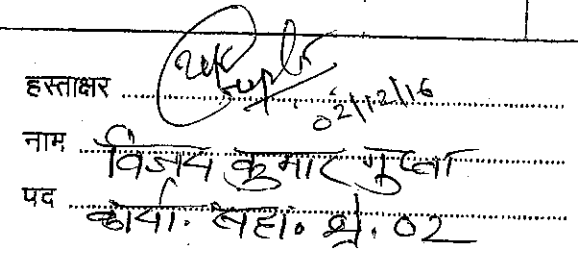 हस्ताक्षर
02/12/16
नाम विजय कुमार गुप्ता
पद कार्या. सहा. श्रे. 02